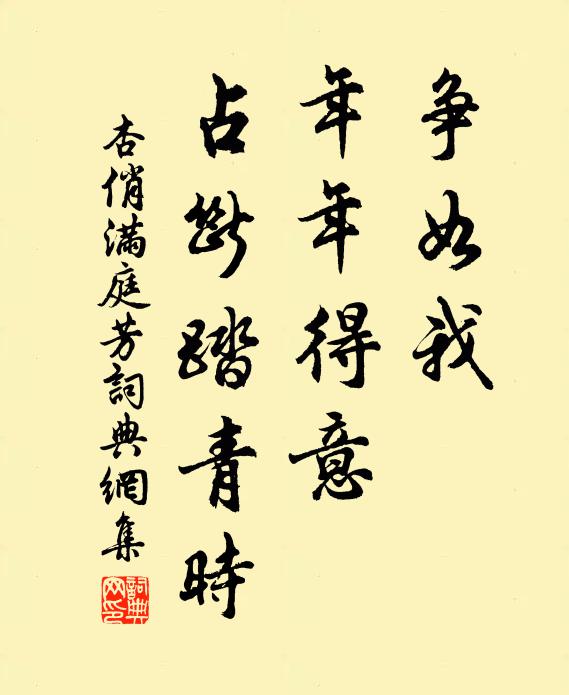 争如我
年年得意
占斷踏青時
杏俏滿庭芳詞典網集
詞典
网印